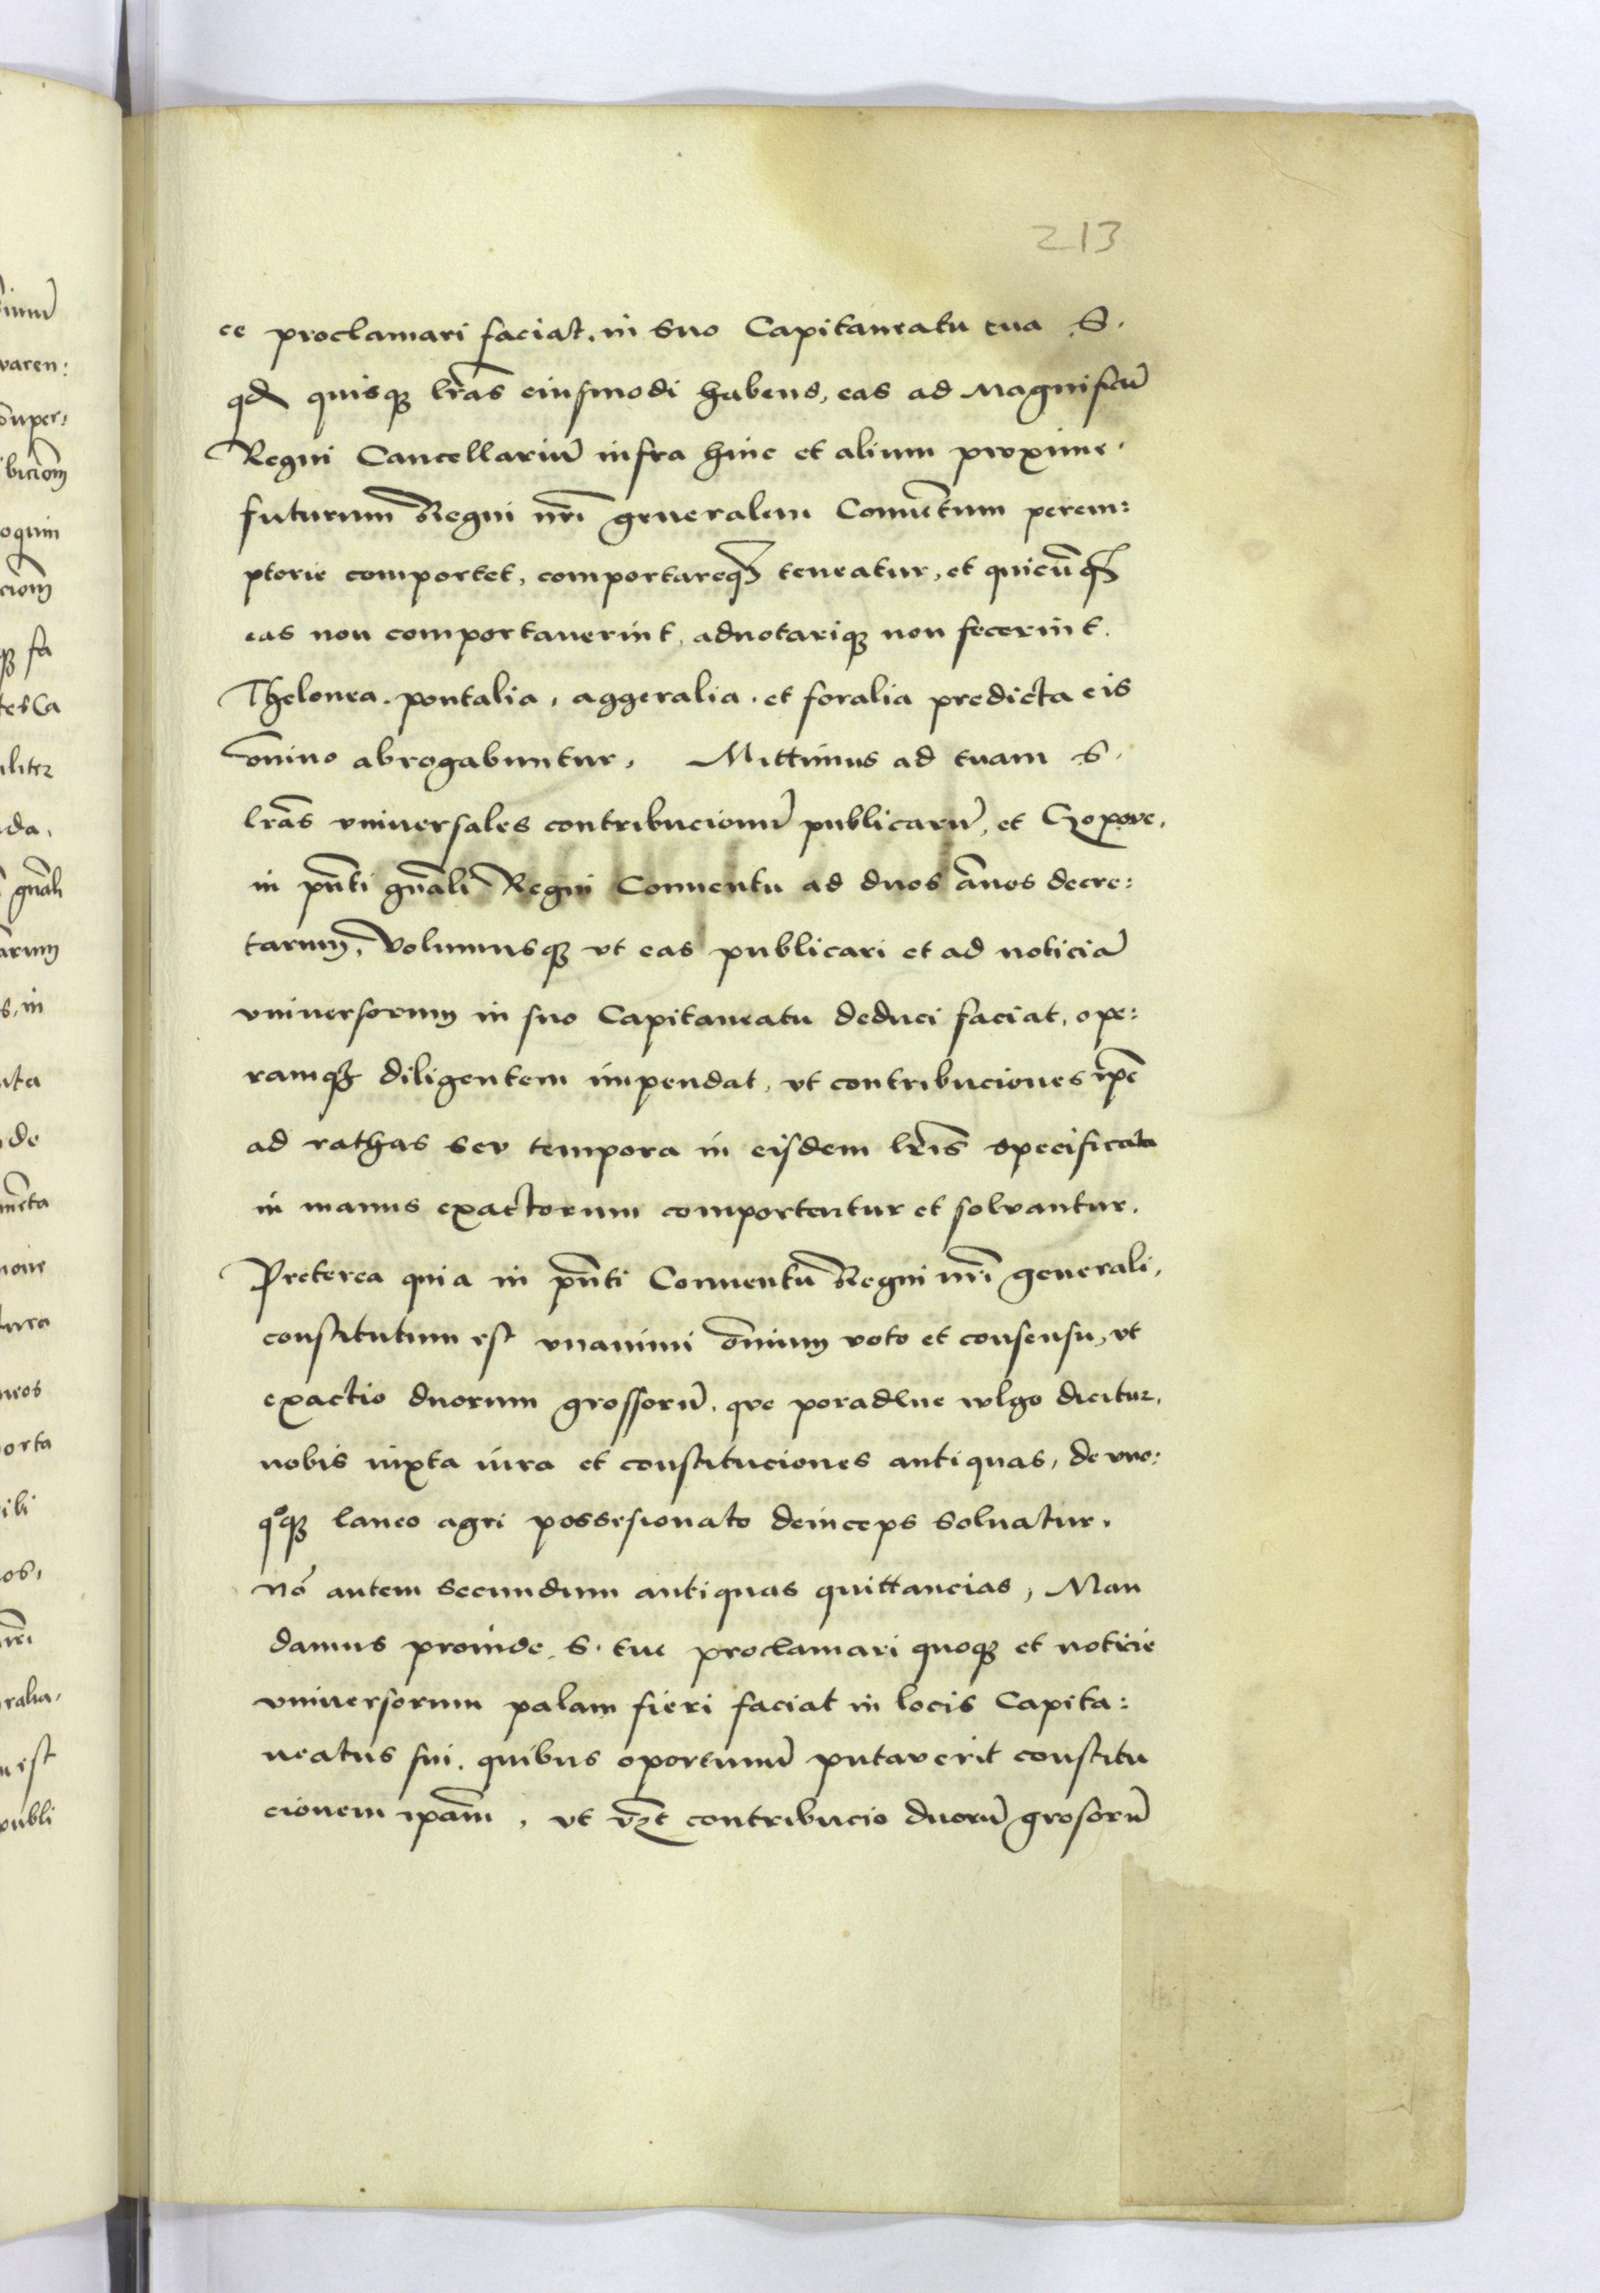 213
ce proclamari faciat. in suo Capitaneatu tua S.
qd quisqꝫ lr̃as eiusmodi habens, eas ad Magnificũ
Regni Cancellariũ infra hinc et alium proxime.
futurum Regni nr̃i generalem Conuẽtum perem:
ptorie comportet, comportareqꝫ teneatur, et quicũqꝫ
eas non comportauerint, adnotariqꝫ non fecerint.
Thelonea. pontalia, aggeralia. et foralia predicta eis
õnino abrogabuntur. Mittimus ad tuam S.
lr̃as vniuersales contribucionũ publicarũ, et Czopove,
in pñti gñali Regni Conuentu ad duos ãnos decre:
tarum, Volumusqꝫ vt eas publicari et ad noticiã
vniuersorum in suo Capitaneatu deduci faciat, ope:
ramqꝫ diligentem impendat, vt contribuciones ip̃e
ad rathas seu tempora in eisdem lr̃is specificata
in manus exactorum comportentur et soluantur.
Preterea quia in pñti Conuentu Regni nr̃i generali,
constitutum est vnanimi õmnium voto et consensu, vt
exactio duorum grossorũ. que poradlne wlgo dicitur,
nobis iuxta iura et constituciones antiquas, de vno:
qͦqꝫ laneo agri possesionato deinceps soluatur.
nõ autem secundum antiquas quittancias, Man
damus proinde S. tue proclamari quoqꝫ et noticie
vniuersorum palam fieri faciat in locis Capita:
neatus sui. quibus oportunũ putaverit constitu
cionem ipãm, vt vꝫt contribucio duorũ grosorũ